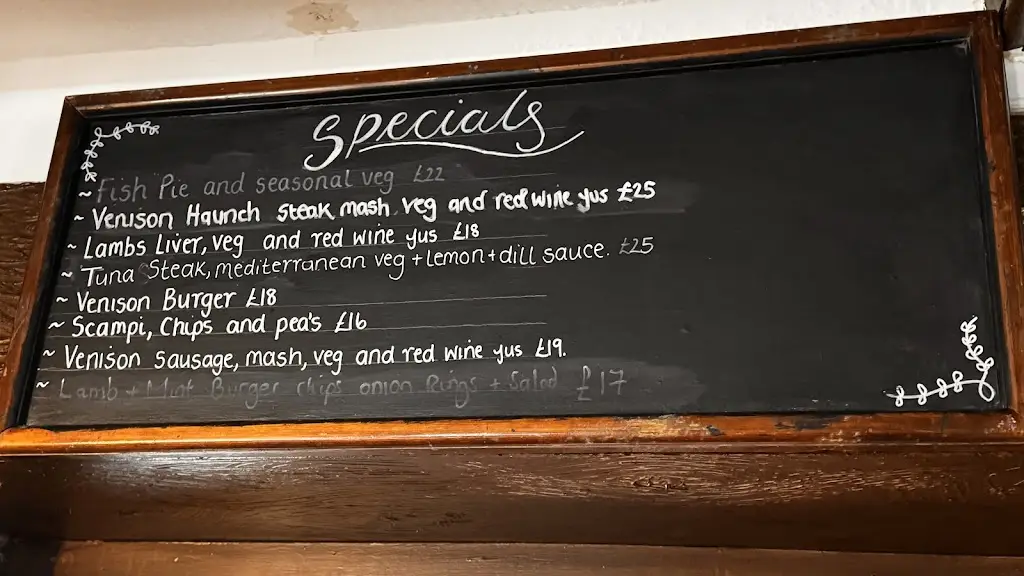 Specials
~ Fish Pie and seasonal veg £22
~ Venison Haunch steak mash veg and red wine yus £25
~ Lambs Liver, veg and red wine yus £18
~ Tuna Steak, mediterranean veg + lemon + dill sauce. £25
~ Venison Burger £18
~ Scampi, Chips and pea's £16
~ Venison sausage, mash, veg and red wine yus £19.
~ Lamb + Mint Burger chips onion Rings + Salad £17